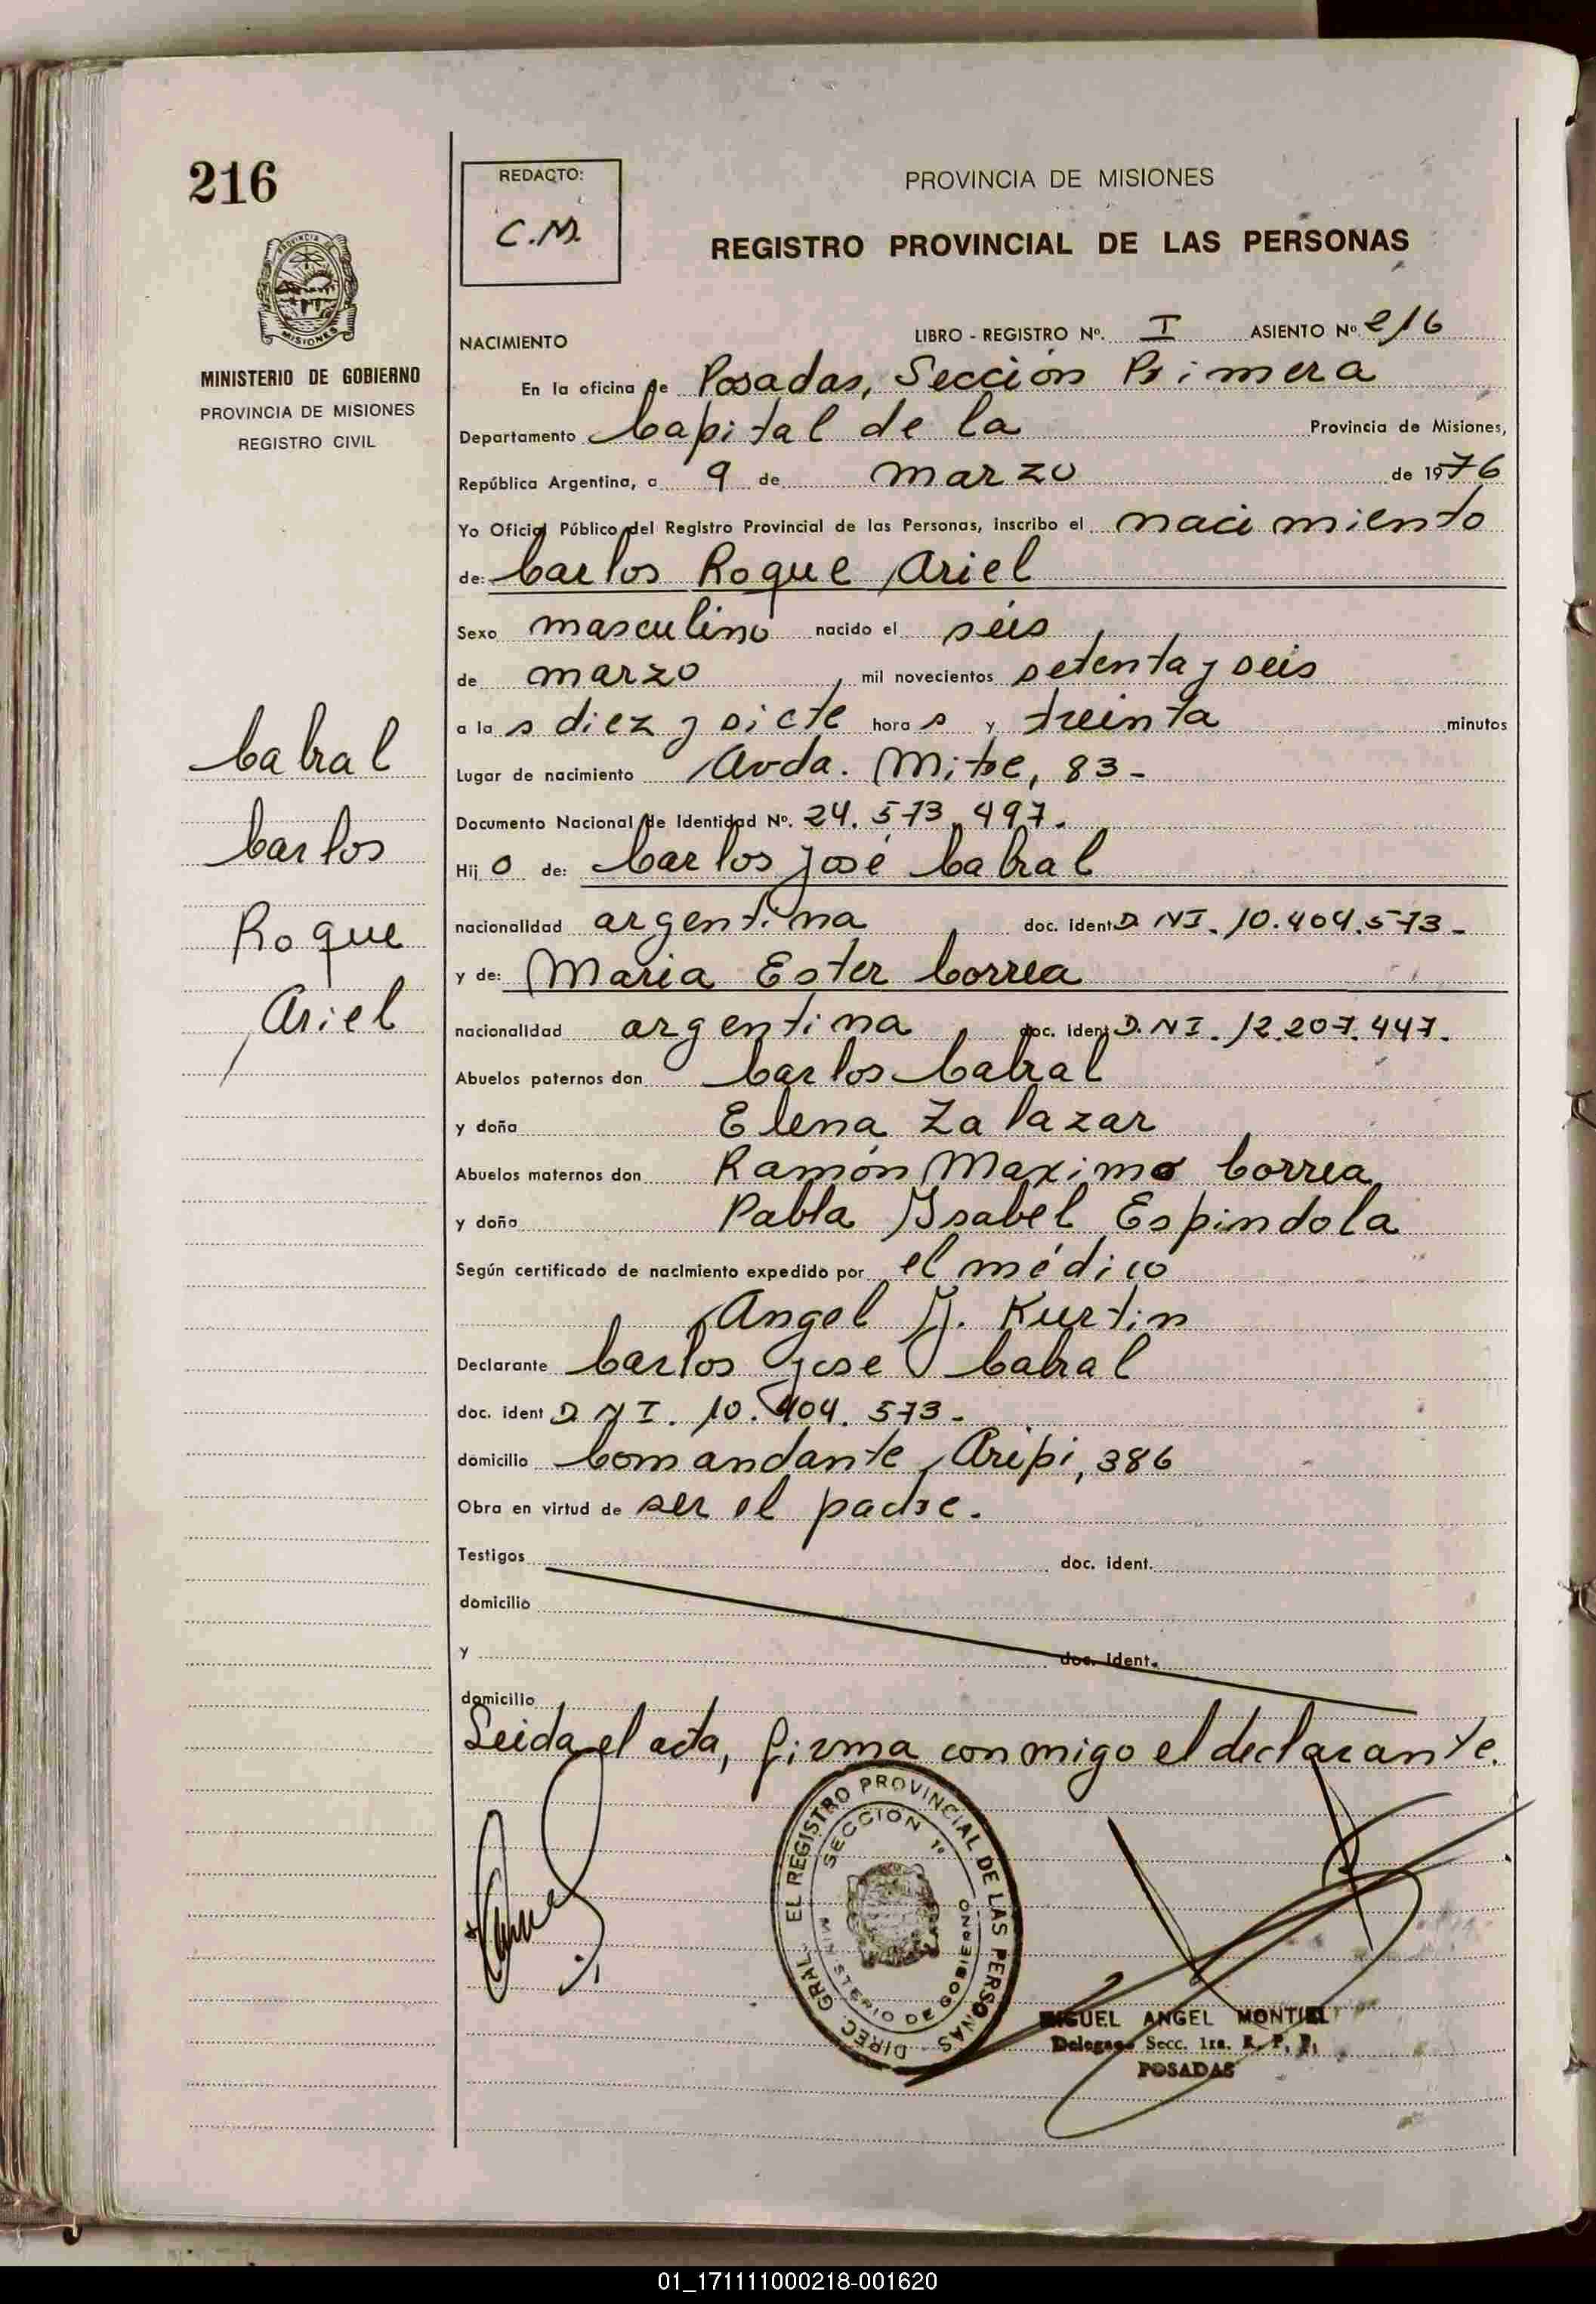 216
REDACTO:
C.M.
PROVINCIA DE MISIONES
REGISTRO PROVINCIAL DE LAS PERSONAS
PROVINCIA DE
MISIONES
MINISTERIO DE GOBIERNO
PROVINCIA DE MISIONES
REGISTRO CIVIL
NACIMIENTO LIBRO - REGISTRO Nº. I ASIENTO Nº. 216
En la oficina de Posadas, Sección Primera
Departamento Capital de la Provincia de Misiones,
República Argentina, a 9 de marzo de 1976
Yo Oficial Público del Registro Provincial de las Personas, inscribo el nacimiento
de: Carlos Roque Ariel
Sexo masculino nacido el séis
de marzo, mil novecientos setenta y seis
a las diez y siete horas y treinta minutos
Lugar de nacimiento Avda. Mitre, 83-
Documento Nacional de Identidad Nº. 24.573.497.
Hijo de: Carlos José Cabral
nacionalidad argentina doc. ident D NI. 10.404.573-
y de: Maria Ester Correa
nacionalidad argentina, doc. ident D. NI. 12.207.447.
Abuelos paternos don Carlos Cabral
y doña Elena Zalazar
Abuelos maternos don Ramón Maximo Correa
y doña Pabla Ysabel Espindola
Según certificado de nacimiento expedido por el médico
Angel Y. Kurtin
Declarante Carlos Jose Cabral
doc. ident D NI. 10.404.573-
domicilio Comandante Aripi, 386
Obra en virtud de ser el padre.
Testigos doc. ident.
domicilio
y doc. ident.
domicilio
Leida el acta, firma conmigo el declarante.
Cabral
Carlos
Roque
Ariel
DIREC. GRAL. EL REGISTRO PROVINCIAL DE LAS PERSONAS
SECCION 1º
MINISTERIO DE GOBIERNO
MIGUEL ANGEL MONTIEL
Delegado Secc. 1ra. R. P. P.
POSADAS
01_171111000218-001620